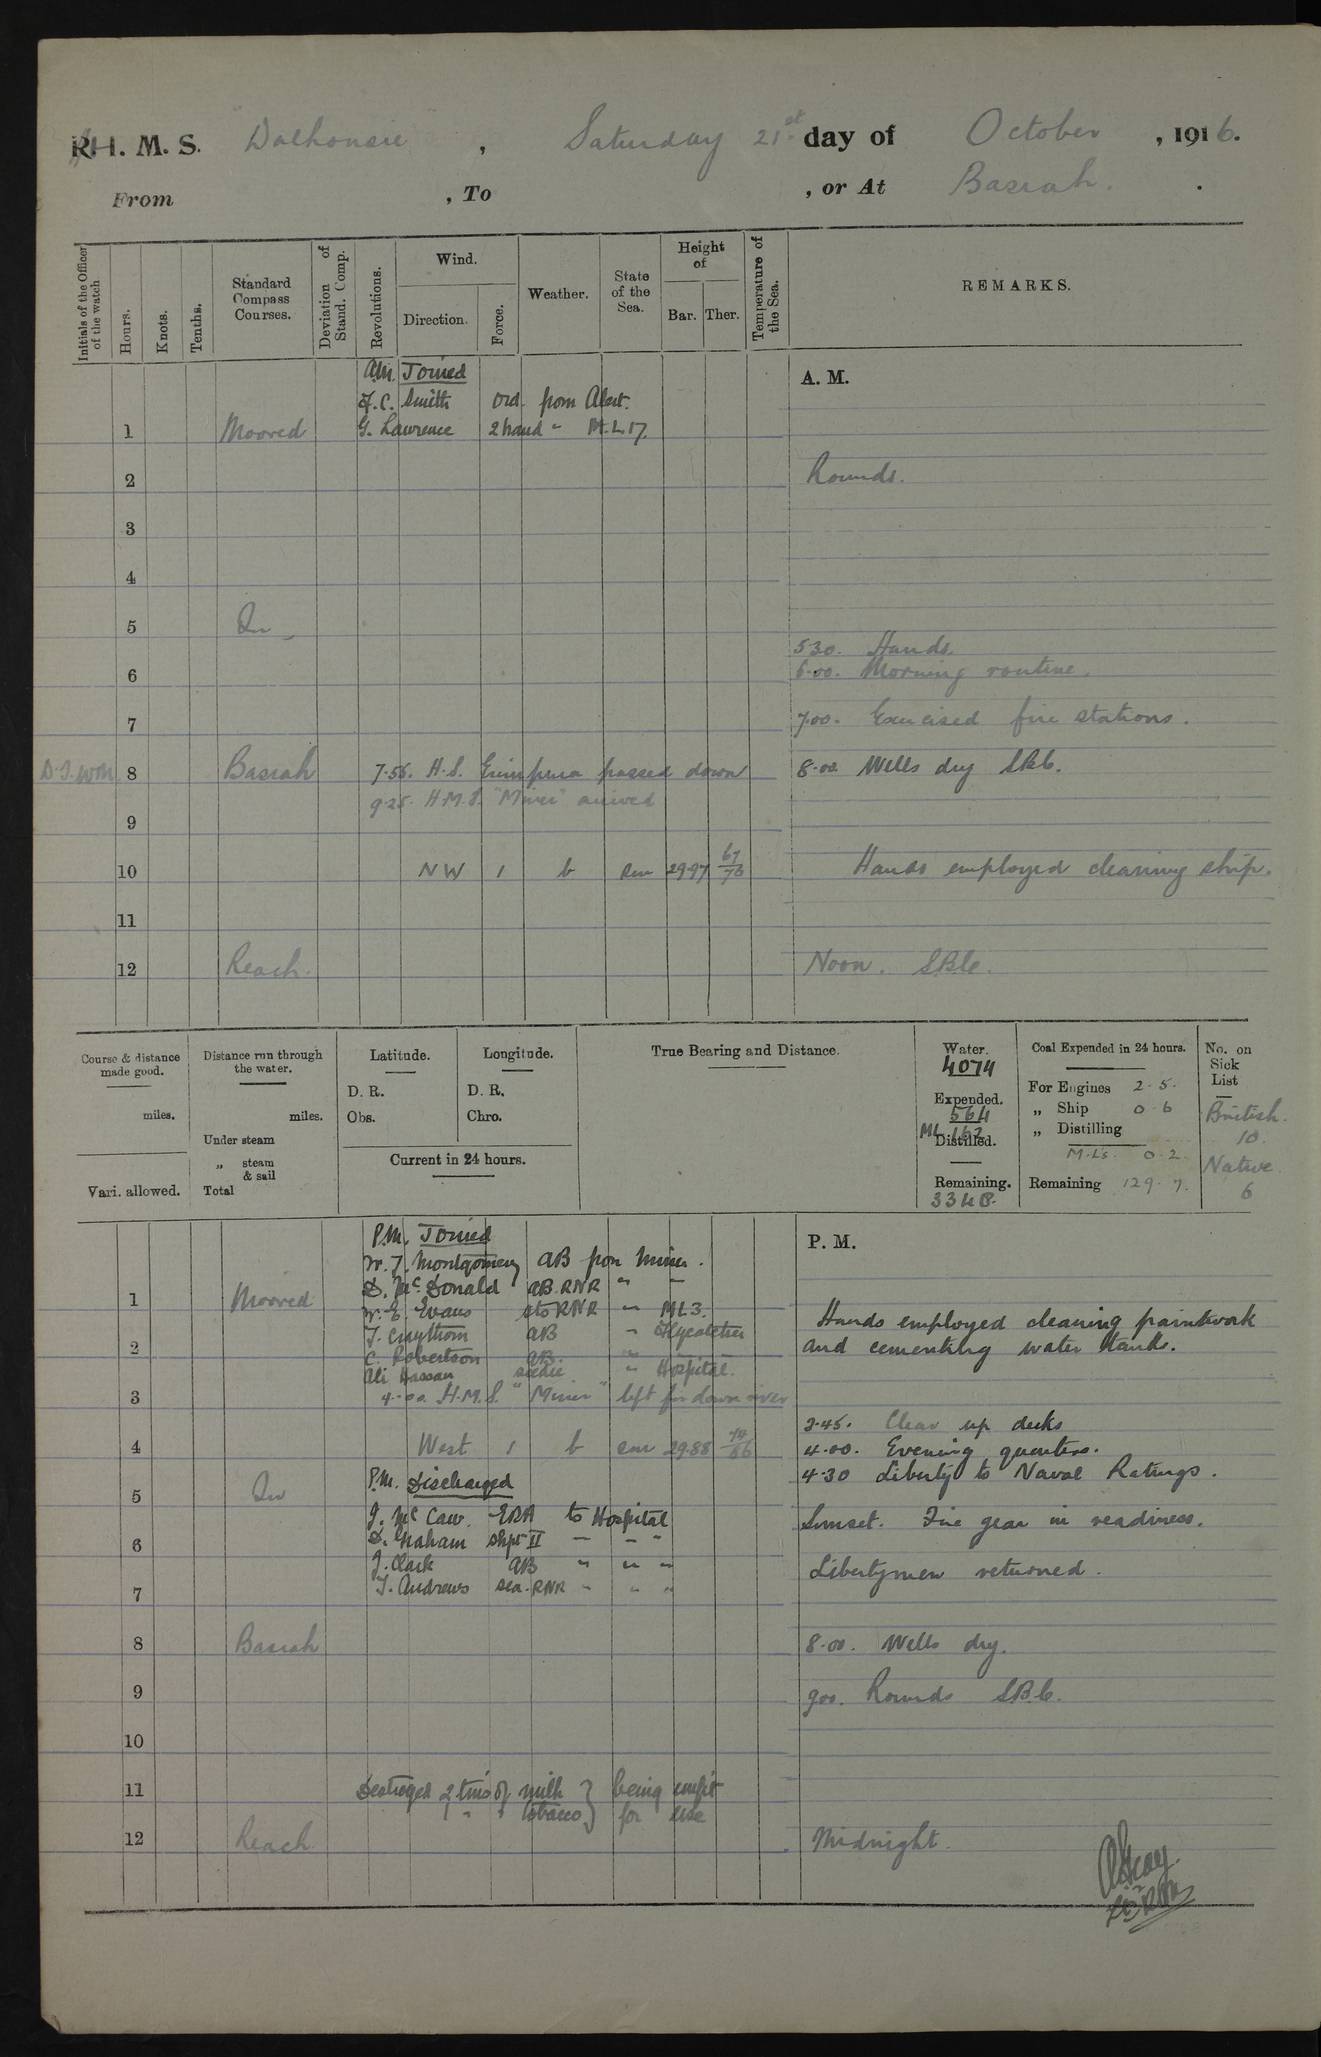 R. H. M. S. "Dalhousie", Saturday 21st day of October, 1916.
From , To , or At Basrah.
Initials of the Officer of the watch
Hours.
Knots.
Tenths.
Standard Compass Courses.
Deviation of Stand. Comp.
Revolutions.
Wind.
Direction.
Force.
Weather.
State of the Sea.
Height of
Bar. Ther.
Temperature of the Sea.
REMARKS.
A.M. Joined
A. M.
F. C. Smith Ord. from Alert.
1 Moored G. Lawrence 2 hand " M.L. 17.
2 Rounds.
3
4
5 In
5.30. Hands.
6 6.00. Morning routine.
7 7.00. Exercised fire stations.
8 Basrah 7.56. H.S. passed down 8.00 Wells dry SBC.
9.25. H.M.S. "Miner" arrived
9
10 NW 1 b sm 29.97 67/76 Hands employed cleaning ship.
11
12 Reach. Noon. SBC.
Course & distance made good.
miles.
Vari. allowed.
Distance run through the water.
miles.
Under steam
„ steam & sail
Total
Latitude.
D. R.
Obs.
Longitude.
D. R.
Chro.
Current in 24 hours.
True Bearing and Distance.
Water.
4074
Expended.
564
ML 162
Distilled.
Remaining.
3348.
Coal Expended in 24 hours.
For Engines 2.5.
„ Ship 0.6
„ Distilling
M.Ls. 0.2.
Remaining 129.7.
No. on Sick List
British.
10.
Native
6
P.M. Joined
P. M.
W. J. Montgomery AB from Miner.
D. McDonald AB. RNR " "
1 Moored W. E. Evans sto RNR " ML3.
Hands employed cleaning paintwork
AB " Flycatcher
2 and cementing water tanks.
C. Robertson AB. " "
Ali Hassan seedie " Hospital.
3 4.00. H.M.S. "Miner" left for down river
3.45. Clear up decks
4 West 1 b sm 29.88 74/86 4.00. Evening quarters.
P.M. Discharged
4.30 Liberty to Naval Ratings.
5 In
J. McCaw. ERA to Hospital
Sunset. Fire gear in readiness.
6 D. Graham shpt II " " "
J. Clark AB " " "
Libertymen returned.
7 J. Andrews sea. RNR " " "
8 Basrah 8.00. Wells dry.
9 9.00. Rounds SBC.
10
11 Destroyed 2 tins of milk } being unfit
" " tobacco } for use
12 Reach Midnight.